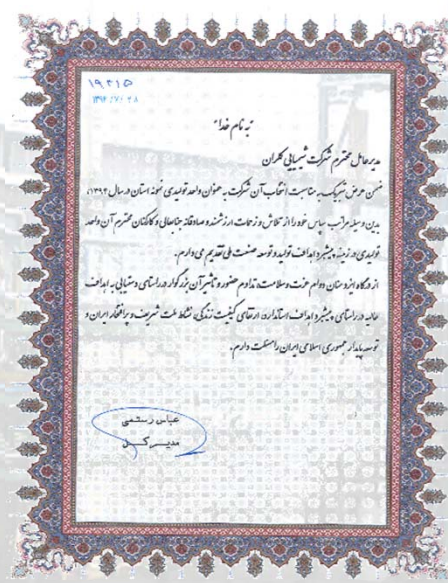 ۱۹۳۱۵
۱۳۹۴/۷/۲۸
به نام خدا
مدیرعامل محترم شرکت شیمیایی کلران
ضمن عرض تبریک به مناسبت انتخاب آن شرکت به عنوان واحد تولیدی نمونه استان در سال ۱۳۹۴،
بدین وسیله مراتب سپاس خود را از تلاش و زحمات ارزشمند و صادقانه جنابعالی و کارکنان محترم آن واحد
تولیدی در زمینه پیشبرد اهداف تولید و توسعه صنعت ملی تقدیم می دارم.
از درگاه ایزد منان دوام عزت و سلامت و تداوم حضور و تاثیر آن بزرگوار در راستای دستیابی به اهداف
عالیه در راستای پیشبرد اهداف استاندارد، ارتقای کیفیت زندگی، نشاط ملت شریف و پرافتخار ایران و
توسعه پایدار جمهوری اسلامی ایران را مسئلت دارم.
عباس رستمی
مدیر کل